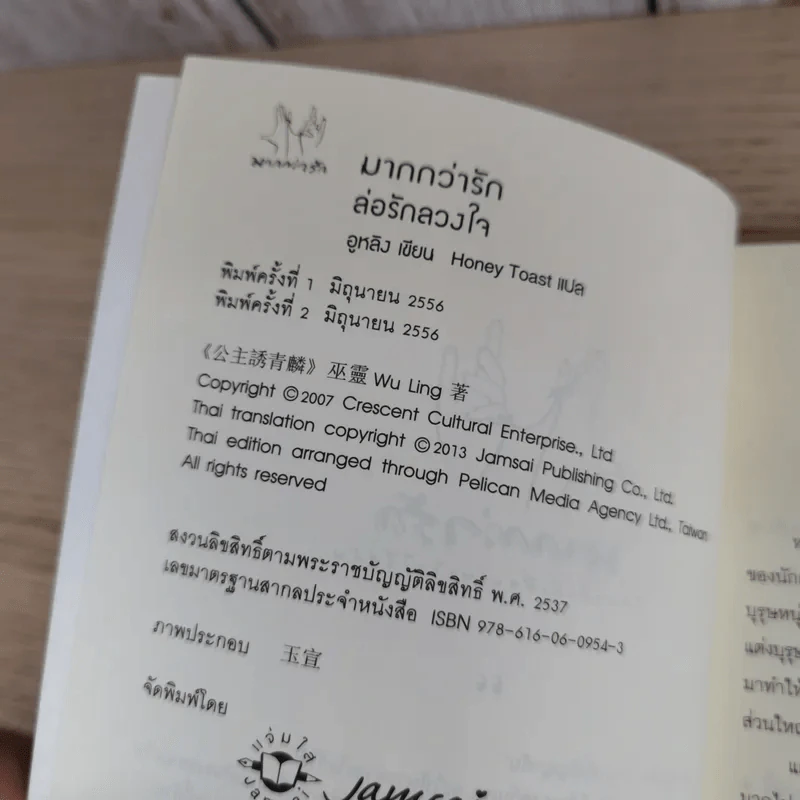 มากกว่ารัก
มากกว่ารัก
ล่อรักลวงใจ
อูหลิง เขียน Honey Toast แปล
พิมพ์ครั้งที่ 1 มิถุนายน 2556
พิมพ์ครั้งที่ 2 มิถุนายน 2556
《公主誘青麟》 巫靈 Wu Ling 著
Copyright ©2007 Crescent Cultural Enterprise., Ltd
Thai translation copyright ©2013 Jamsai Publishing Co., Ltd.
Thai edition arranged through Pelican Media Agency Ltd., Taiwan
All rights reserved
สงวนลิขสิทธิ์ตามพระราชบัญญัติลิขสิทธิ์ พ.ศ. 2537
เลขมาตรฐานสากลประจำหนังสือ ISBN 978-616-06-0954-3
ภาพประกอบ 玉宣
จัดพิมพ์โดย
แจ่มใส
ของนัก
บุรุษหนุ่
แต่งบุรุษ
มาทำให้
ส่วนใหญ่